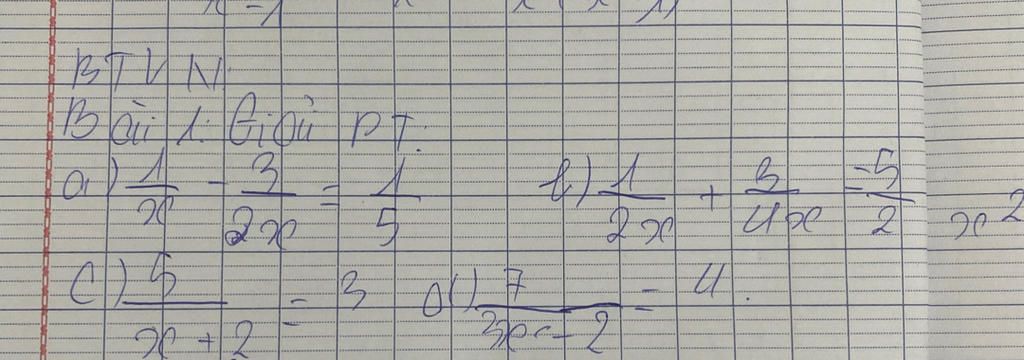 BTVN:
Bài 1: Giải PT:
a) 1/x - 3/2x = 1/5 b) 1/2x + 3/4x = -5/2 x²
c) 5/x+2 = 3 d) 7/3x-2 = 4.